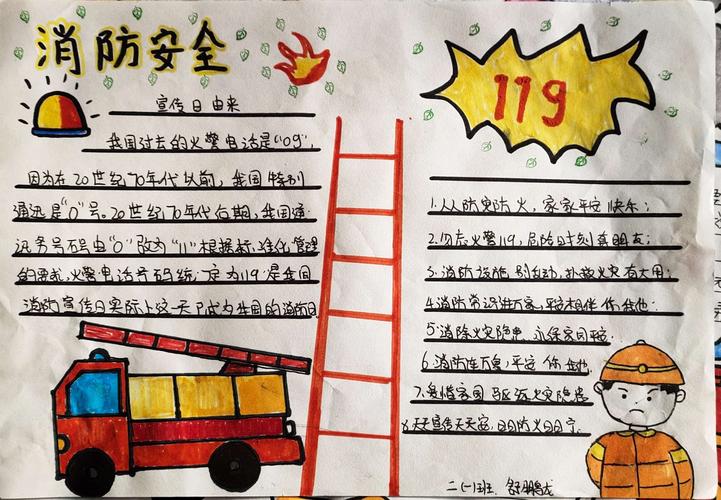 消防安全
宣传日由来
我国过去的火警电话是"09",
因为在20世纪70年代以前,我国特别
通迅是"0"号。20世纪70年代后期,我国通
讯务号码由"0"改为"11"根据标准化管理
的要求,火警电话号码统一定为119是我国
消防宣传日实际上这一天已成为全国的消防日
119
1.人人防灾防火,家家平安快乐;
2.勿忘火警119,危险时刻真朋友;
3.消防设施别乱动,扑救火灾有大用;
4.消防常识进万家,平安相伴你我他;
5.消除火灾隐患,永保家园平安.
6.消防连万家,平安你我他.
7.爱惜家园 驱逐火灾隐患
8.天天宣传天天安,日日防火日日宁.
二(一)班